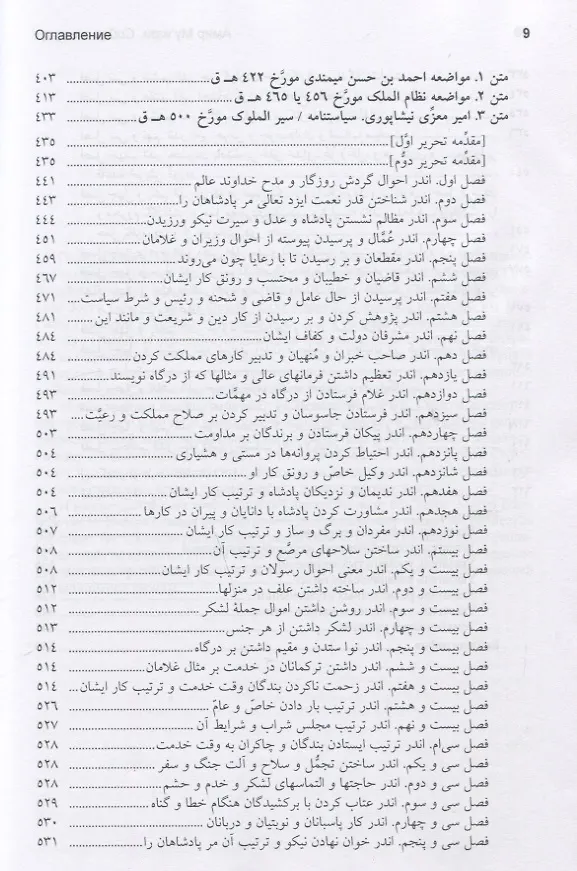 Оглавление 9
متن ۱. مواضعه احمد بن حسن میمندی مورَّخ ۴۲۲ هـ ق ۴۰۳
متن ۲. مواضعه نظام الملک مورّخ ۴۵۶ یا ۴۶۵ هـ ق ۴۱۳
متن ۳. امیر معزّی نیشاپوری. سیاستنامه / سیر الملوک مورّخ ۵۰۰ هـ ق ۴۳۳
[مقدّمه تحریر اوَّل] ۴۳۵
[مقدّمه تحریر دوُّم] ۴۳۵
فصل اول. اندر احوال گردش روزگار و مدح خداوند عالم ۴۴۱
فصل دوم. اندر شناختن قدر نعمت ایزد تعالی مر پادشاهان را ۴۴۳
فصل سوم. اندر مظالم نشستن پادشاه و عدل و سیرت نیکو ورزیدن ۴۴۴
فصل چهارم. اندر عُمَّال و پرسیدن پیوسته از احوال وزیران و غلامان ۴۵۱
فصل پنجم. اندر مقطعان و بر رسیدن تا با رعایا چون می‌روند ۴۵۹
فصل ششم. اندر قاضیان و خطیبان و محتسب و رونق کار ایشان ۴۶۷
فصل هفتم. اندر پرسیدن از حال عامل و قاضی و شحنه و رئیس و شرط سیاست ۴۷۱
فصل هشتم. اندر پژوهش کردن و بر رسیدن از کار دین و شریعت و مانند این ۴۸۱
فصل نهم. اندر مشرفان دولت و کفاف ایشان ۴۸۴
فصل دهم. اندر صاحب خبران و مُنهیان و تدبیر کارهای مملکت کردن ۴۸۴
فصل یازدهم. اندر تعظیم داشتن فرمانهای عالی و مثالها که از درگاه نویسند ۴۹۱
فصل دوازدهم. اندر غلام فرستادن از درگاه در مهمَّات ۴۹۳
فصل سیزدهم. اندر فرستادن جاسوسان و تدبیر کردن بر صلاح مملکت و رعیَّت ۴۹۳
فصل چهاردهم. اندر پیکان فرستادن و برندگان بر مداومت ۵۰۳
فصل پانزدهم. اندر احتیاط کردن پروانه‌ها در مستی و هشیاری ۵۰۴
فصل شانزدهم. اندر وکیل خاصّ و رونق کار او ۵۰۴
فصل هفدهم. اندر ندیمان و نزدیکان پادشاه و ترتیب کار ایشان ۵۰۴
فصل هجدهم. اندر مشاورت کردن پادشاه با دانایان و پیران در کارها ۵۰۶
فصل نوزدهم. اندر مفردان و برگ و ساز و ترتیب کار ایشان ۵۰۷
فصل بیستم. اندر ساختن سلاحهای مرصَّع و ترتیب آن ۵۰۸
فصل بیست و یکم. اندر معنی احوال رسولان و ترتیب کار ایشان ۵۰۸
فصل بیست و دوم. اندر ساخته داشتن علف در منزلها ۵۱۲
فصل بیست و سوم. اندر روشن داشتن اموال جملۀ لشکر ۵۱۲
فصل بیست و چهارم. اندر لشکر داشتن از هر جنس ۵۱۳
فصل بیست و پنجم. اندر نوا ستدن و مقیم داشتن بر درگاه ۵۱۴
فصل بیست و ششم. اندر داشتن ترکمانان در خدمت بر مثال غلامان ۵۱۴
فصل بیست و هفتم. اندر زحمت ناکردن بندگان وقت خدمت و ترتیب کار ایشان ۵۱۴
فصل بیست و هشتم. اندر ترتیب بار دادن خاصّ و عامّ ۵۲۶
فصل بیست و نهم. اندر ترتیب مجلس شراب و شرایط آن ۵۲۷
فصل سی‌ام. اندر ترتیب ایستادن بندگان و چاکران به وقت خدمت ۵۲۸
فصل سی و یکم. اندر ساختن تجمُّل و سلاح و آلت جنگ و سفر ۵۲۸
فصل سی و دوم. اندر حاجتها و التماسهای لشکر و خدم و حشم ۵۲۸
فصل سی و سوم. اندر عتاب کردن با برکشیدگان هنگام خطا و گناه ۵۲۹
فصل سی و چهارم. اندر کار پاسبانان و نوبتیان و دربانان ۵۳۰
فصل سی و پنجم. اندر خوان نهادن نیکو و ترتیب آن مر پادشاهان را ۵۳۱